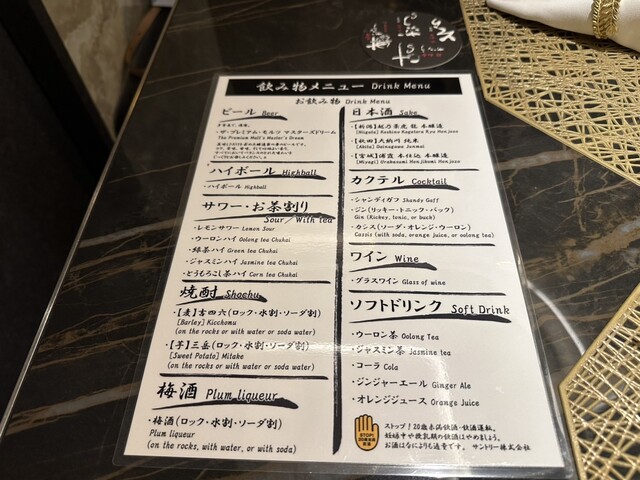 飲み物メニュー Drink Menu
お飲み物 Drink Menu
ビール Beer
・ザ・プレミアム・モルツ マスターズドリーム
The Premium Malt's Master's Dream
ハイボール Highball
・ハイボール Highball
サワー・お茶割り
Sour／With tea
・レモンサワー Lemon Sour
・ウーロンハイ Oolong tea Chuhai
・緑茶ハイ Green tea Chuhai
・ジャスミンハイ Jasmine tea Chuhai
・とうもろこし茶ハイ Corn tea Chuhai
焼酎 Shochu
・【麦】吉四六(ロック・水割・ソーダ割)
[Barley] Kicchomu
(on the rocks or with water or soda water)
・【芋】三岳(ロック・水割・ソーダ割)
[Sweet Potato] Mitake
(on the rocks or with water or soda water)
梅酒 Plum liqueur
・梅酒(ロック・水割・ソーダ割)
Plum liqueur
(on the rocks, with water, or with soda)
日本酒 Sake
・【新潟】越乃景虎 龍 本醸造
[Niigata] Koshino Kagetora Ryu Honjozo
・【秋田】大納川 純米
[Akita] Dainagawa Junmai
・【宮城】浦霞 本仕込 本醸造
[Miyagi] Urakasumi Honjikomi Honjozo
カクテル Cocktail
・シャンディガフ Shandy Gaff
・ジン(リッキー・トニック・バック)
Gin (Rickey, tonic, or buck)
・カシス(ソーダ・オレンジ・ウーロン)
Cassis (with soda, orange juice, or oolong tea)
ワイン Wine
・グラスワイン Glass of wine
ソフトドリンク Soft Drink
・ウーロン茶 Oolong Tea
・ジャスミン茶 Jasmine tea
・コーラ Cola
・ジンジャーエール Ginger Ale
・オレンジジュース Orange Juice
STOP!
ストップ！20歳未満飲酒・飲酒運転。
妊娠中や授乳期の飲酒はやめましょう。
お酒はなによりも適量です。 サントリー株式会社